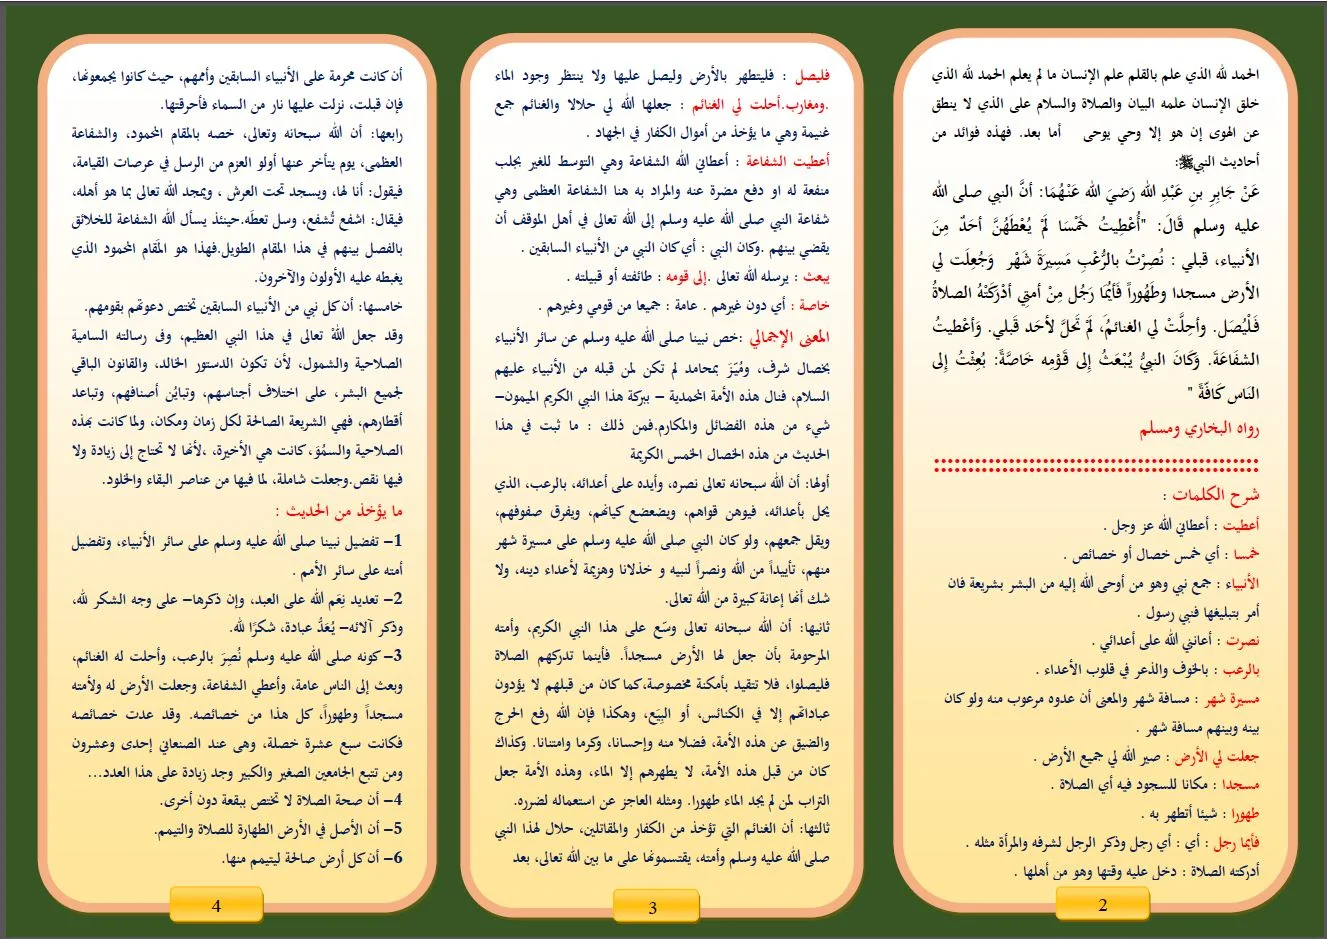 الحمد لله الذي علم بالقلم علم الإنسان ما لم يعلم الحمد لله الذي
خلق الإنسان علمه البيان والصلاة والسلام على الذي لا ينطق
عن الهوى إن هو إلا وحي يوحى أما بعد. فهذه فوائد من
أحاديث النبيﷺ:
عَنْ جَابِرِ بنِ عَبْدِ الله رَضيَ الله عَنْهُمَا: أنَّ النبي صلى الله
عليه وسلم قَالَ: "أُعْطِيتُ خَمْسَا لَمْ يُعْطَهُنَّ أحَدٌ مِنَ
الأنبياء، قبلي : نُصِرْتُ بالرُّعْبِ مَسِيرَةَ شَهْر وَجُعِلَت لي
الأرض مسجدا وطَهُوراً فَأيُّمَا رَجُل مِنْ أمتي أدْرَكَتْهُ الصلاةُ
فَلْيُصَل. وأحِلَّتْ لي الغنائمُ، لَمْ تَحلَّ لأحَد قَبلي. وَأعْطيتُ
الشفاعَةَ. وَكَانَ النبيُّ يُبْعَثُ إِلى قَوْمِه خَاصَّةً: بُعِثْتُ إِلى
النَاس كَافّةً "
رواه البخاري ومسلم
شرح الكلمات :
أعطيت : أعطاني الله عز وجل .
خمسا : أي خمس خصال أو خصائص .
الأنبياء : جمع نبي وهو من أوحى الله إليه من البشر بشريعة فان
أمر بتبليغها فنبي رسول .
نصرت : أعانني الله على أعدائي .
بالرعب : بالخوف والذعر في قلوب الأعداء .
مسيرة شهر : مسافة شهر والمعنى أن عدوه مرعوب منه ولو كان
بينه وبينهم مسافة شهر .
جعلت لي الأرض : صير الله لي جميع الأرض .
مسجدا : مكانا للسجود فيه أي الصلاة .
طهورا : شيئا أتطهر به .
فأيما رجل : أي : أي رجل وذكر الرجل لشرفه والمرأة مثله .
أدركته الصلاة : دخل عليه وقتها وهو من أهلها .
2
فليصل : فليتطهر بالأرض وليصل عليها ولا ينتظر وجود الماء
.ومغارب.أحلت لي الغنائم : جعلها الله لي حلالا والغنائم جمع
غنيمة وهي ما يؤخذ من أموال الكفار في الجهاد .
أعطيت الشفاعة : أعطاني الله الشفاعة وهي التوسط للغير بجلب
منفعة له او دفع مضرة عنه والمراد به هنا الشفاعة العظمى وهي
شفاعة النبي صلى الله عليه وسلم إلى الله تعالى في أهل الموقف أن
يقضي بينهم .وكان النبي : أي كان النبي من الأنبياء السابقين .
يبعث : يرسله الله تعالى .إلى قومه : طائفته أو قبيلته .
خاصة : أي دون غيرهم . عامة : جميعا من قومي وغيرهم .
المعنى الإجمالي :خص نبينا صلى الله عليه وسلم عن سائر الأنبياء
بخصال شرف، ومُيّزَ بمحامد لم تكن لمن قبله من الأنبياء عليهم
السلام، فنال هذه الأمة المحمدية – ببركة هذا النبي الكريم الميمون–
شيء من هذه الفضائل والمكارم.فمن ذلك : ما ثبت في هذا
الحديث من هذه الخصال الخمس الكريمة
أولها: أن الله سبحانه تعالى نصره، وأيده على أعدائه، بالرعب، الذي
يحل بأعدائه، فيوهن قواهم، ويضعضع كيانهم، ويفرق صفوفهم،
ويقل جمعهم، ولو كان النبي صلى الله عليه وسلم على مسيرة شهر
منهم، تأييداً من الله ونصراً لنبيه و خذلانا وهزيمة لأعداء دينه، ولا
شك أنها إعانة كبيرة من الله تعالى.
ثانيها: أن الله سبحانه تعالى وسّع على هذا النبي الكريم، وأمته
المرحومة بأن جعل لها الأرض مسجداً. فأينما تدركهم الصلاة
فليصلوا، فلا تتقيد بأمكنة مخصوصة،كما كان من قبلهم لا يؤدون
عباداتهم إلا في الكنائس، أو البِيَع، وهكذا فإن الله رفع الحرج
والضيق عن هذه الأمة، فضلا منه وإحسانا، وكرما وامتنانا. وكذاك
كان من قبل هذه الأمة، لا يطهرهم إلا الماء، وهذه الأمة جعل
التراب لمن لم يجد الماء طهورا. ومثله العاجز عن استعماله لضرره.
ثالثها: أن الغنائم التي تؤخذ من الكفار والمقاتلين، حلال لهذا النبي
صلى الله عليه وسلم وأمته، يقتسمونها على ما بين الله تعالى، بعد
3
أن كانت محرمة على الأنبياء السابقين وأممهم، حيث كانوا يجمعونها،
فإن قبلت، نزلت عليها نار من السماء فأحرقتها.
رابعها: أن الله سبحانه وتعالى، خصه بالمقام المحمود، والشفاعة
العظمى، يوم يتأخر عنها أولو العزم من الرسل في عرصات القيامة،
فيقول: أنا لها، ويسجد تحت العرش ، ويمجد الله تعالى بما هو أهله،
فيقال: اشفع تُشفع، وسل تعطَه.حينئذ يسأل الله الشفاعة للخلائق
بالفصل بينهم في هذا المقام الطويل.فهذا هو المَقام المحمود الذي
يغبطه عليه الأولون والآخرون.
خامسها: أن كل نبي من الأنبياء السابقين تختص دعوتهم بقومهم.
وقد جعل اللهُ تعالى في هذا النبي العظيم، وفى رسالته السامية
الصلاحية والشمول، لأن تكون الدستور الخالد، والقانون الباقي
لجميع البشر، على اختلاف أجناسهم، وتبايُن أصنافهم، وتباعد
أقطارهم، فهي الشريعة الصالحة لكل زمان ومكان، ولما كانت بهذه
الصلاحية والسمُوَ، كانت هي الأخيرة، ،لأنها لا تحتاج إلى زيادة ولا
فيها نقص.وجعلت شاملة، لما فيها من عناصر البقاء والخلود.
ما يؤخذ من الحديث :
1– تفضيل نبينا صلى الله عليه وسلم على سائر الأنبياء، وتفضيل
أمته على سائر الأمم .
2– تعديد نِعَم الله على العبد، وإن ذكرها– على وجه الشكر لله،
وذكر آلائه– يُعَدُّ عبادة، شكرًا لله.
3– كونه صلى الله عليه وسلم نُصِرَ بالرعب، وأحلت له الغنائم،
وبعث إلى الناس عامة، وأعطي الشفاعة، وجعلت الأرض له ولأمته
مسجداً وطهوراً، كل هذا من خصائصه. وقد عدت خصائصه
فكانت سبع عشرة خصلة، وهى عند الصنعاني إحدى وعشرون
ومن تتبع الجامعين الصغير والكبير وجد زيادة على هذا العدد...
4– أن صحة الصلاة لا تختص ببقعة دون أخرى.
5– أن الأصل في الأرض الطهارة للصلاة والتيمم.
6– أن كل أرض صالحة ليتيمم منها.
4